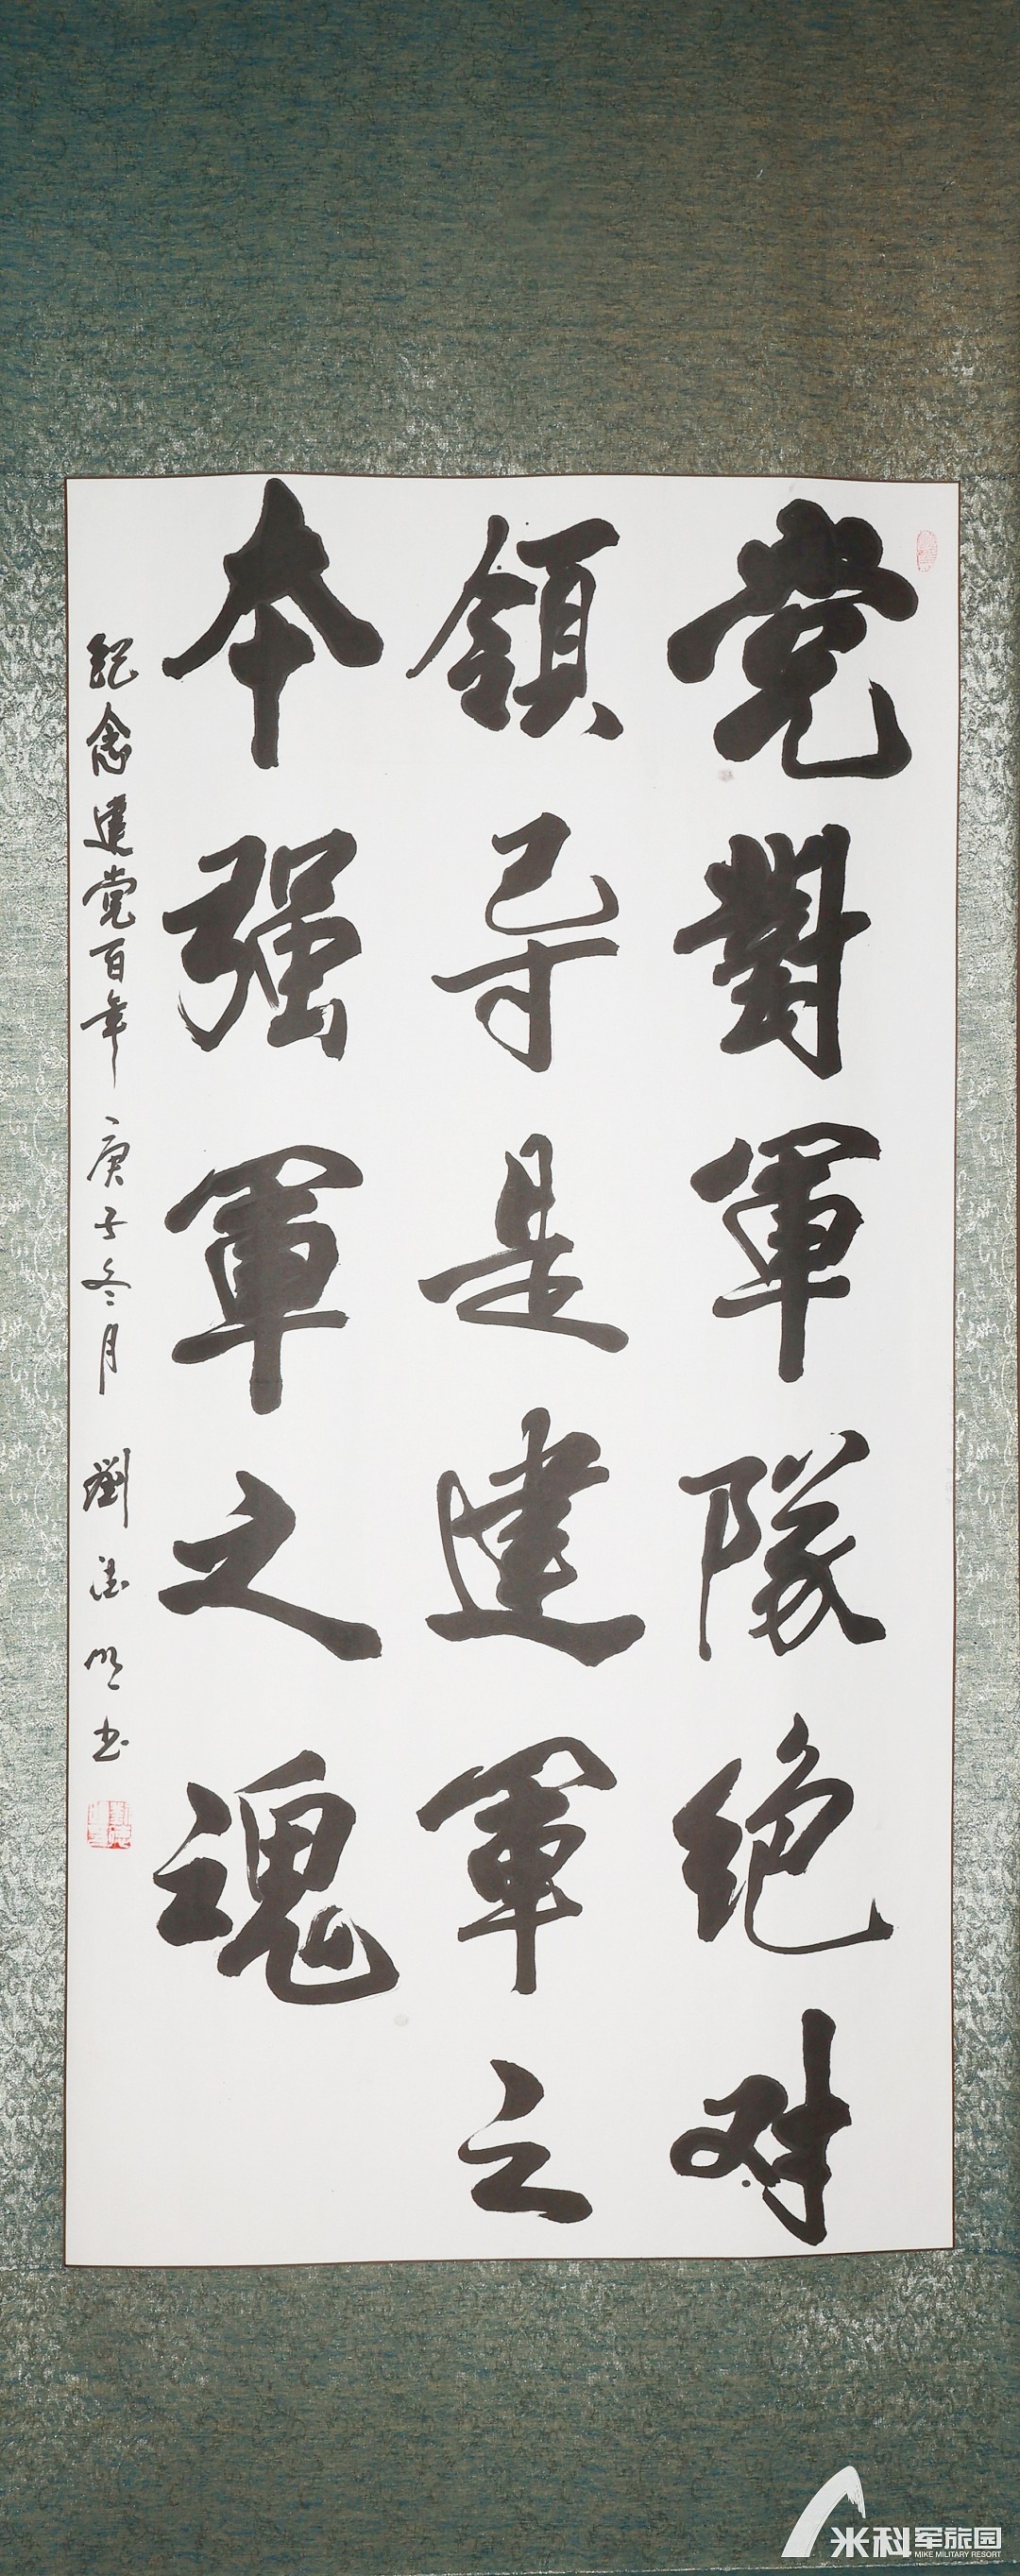 党對軍隊绝对
領导是建軍之
本强軍之魂
紀念建党百年 庚子冬月 劉德明书
米科军旅园
MIKE MILITARY RESORT